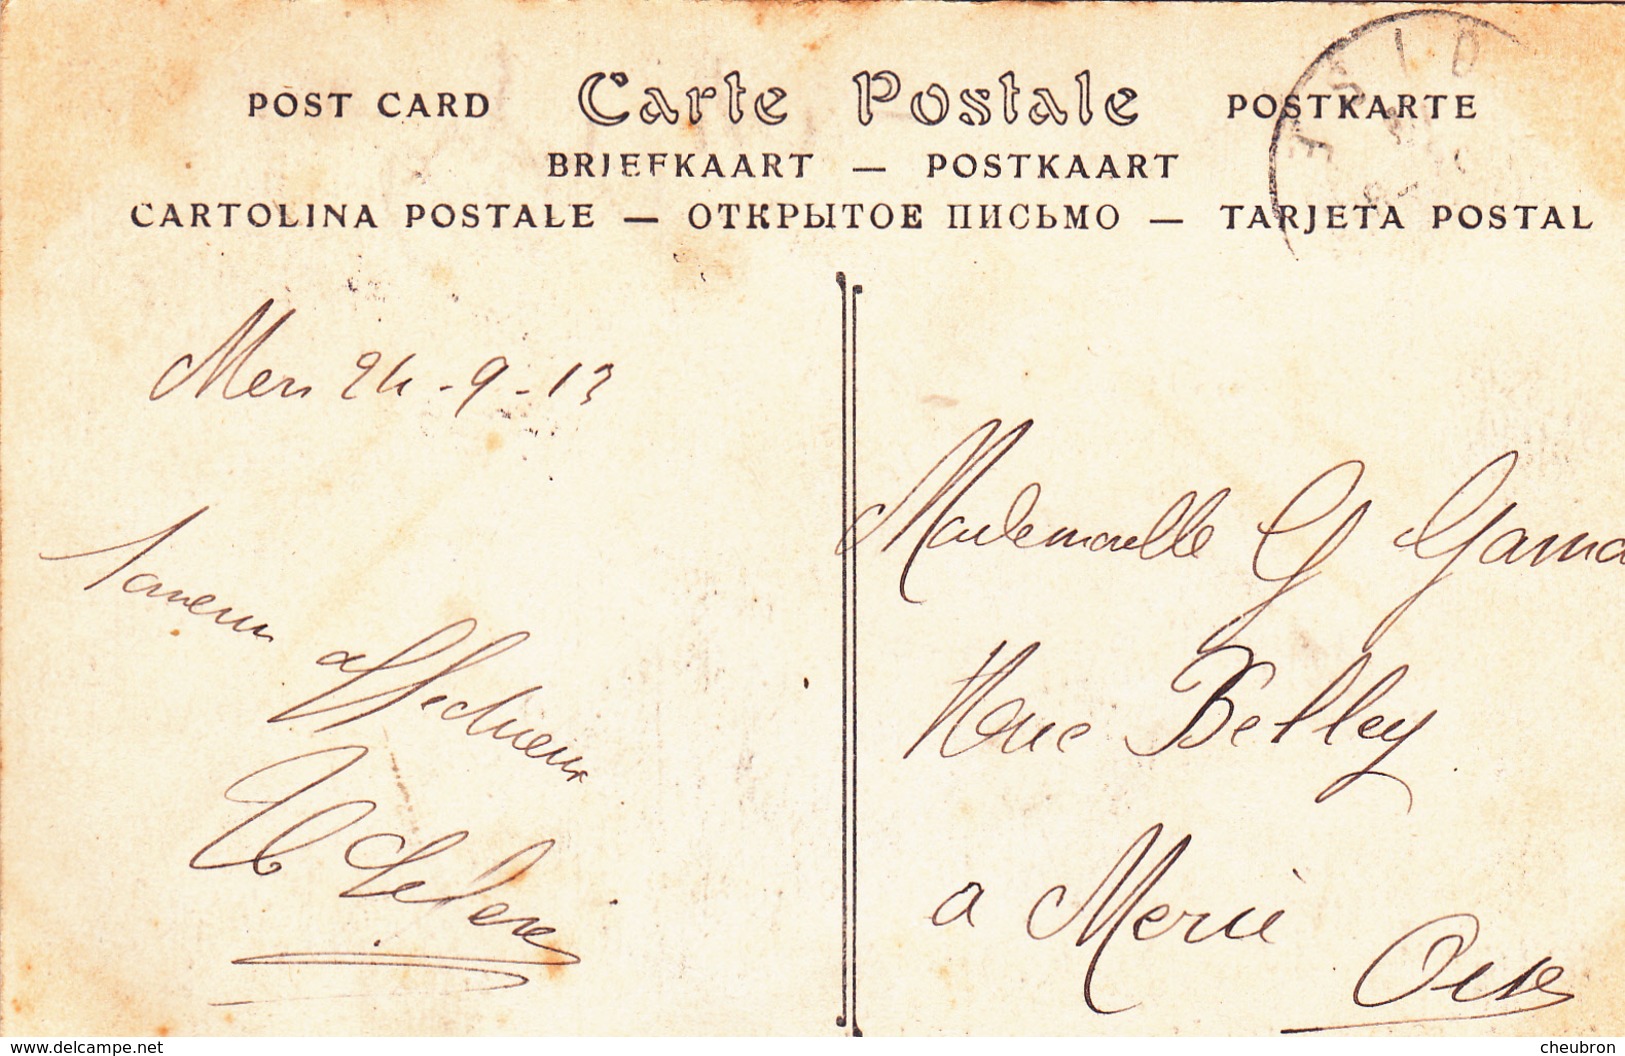 POST CARD Carte Postale POSTKARTE
BRIEFKAART — POSTKAART
CARTOLINA POSTALE — ОТКРЫТОЕ ПИСЬМО — TARJETA POSTAL
Mers 24-9-13
Souvenir
affectueux
Mademoiselle G
Rue Belley
a Meru
Oise
www.delcampe.net
cheubron